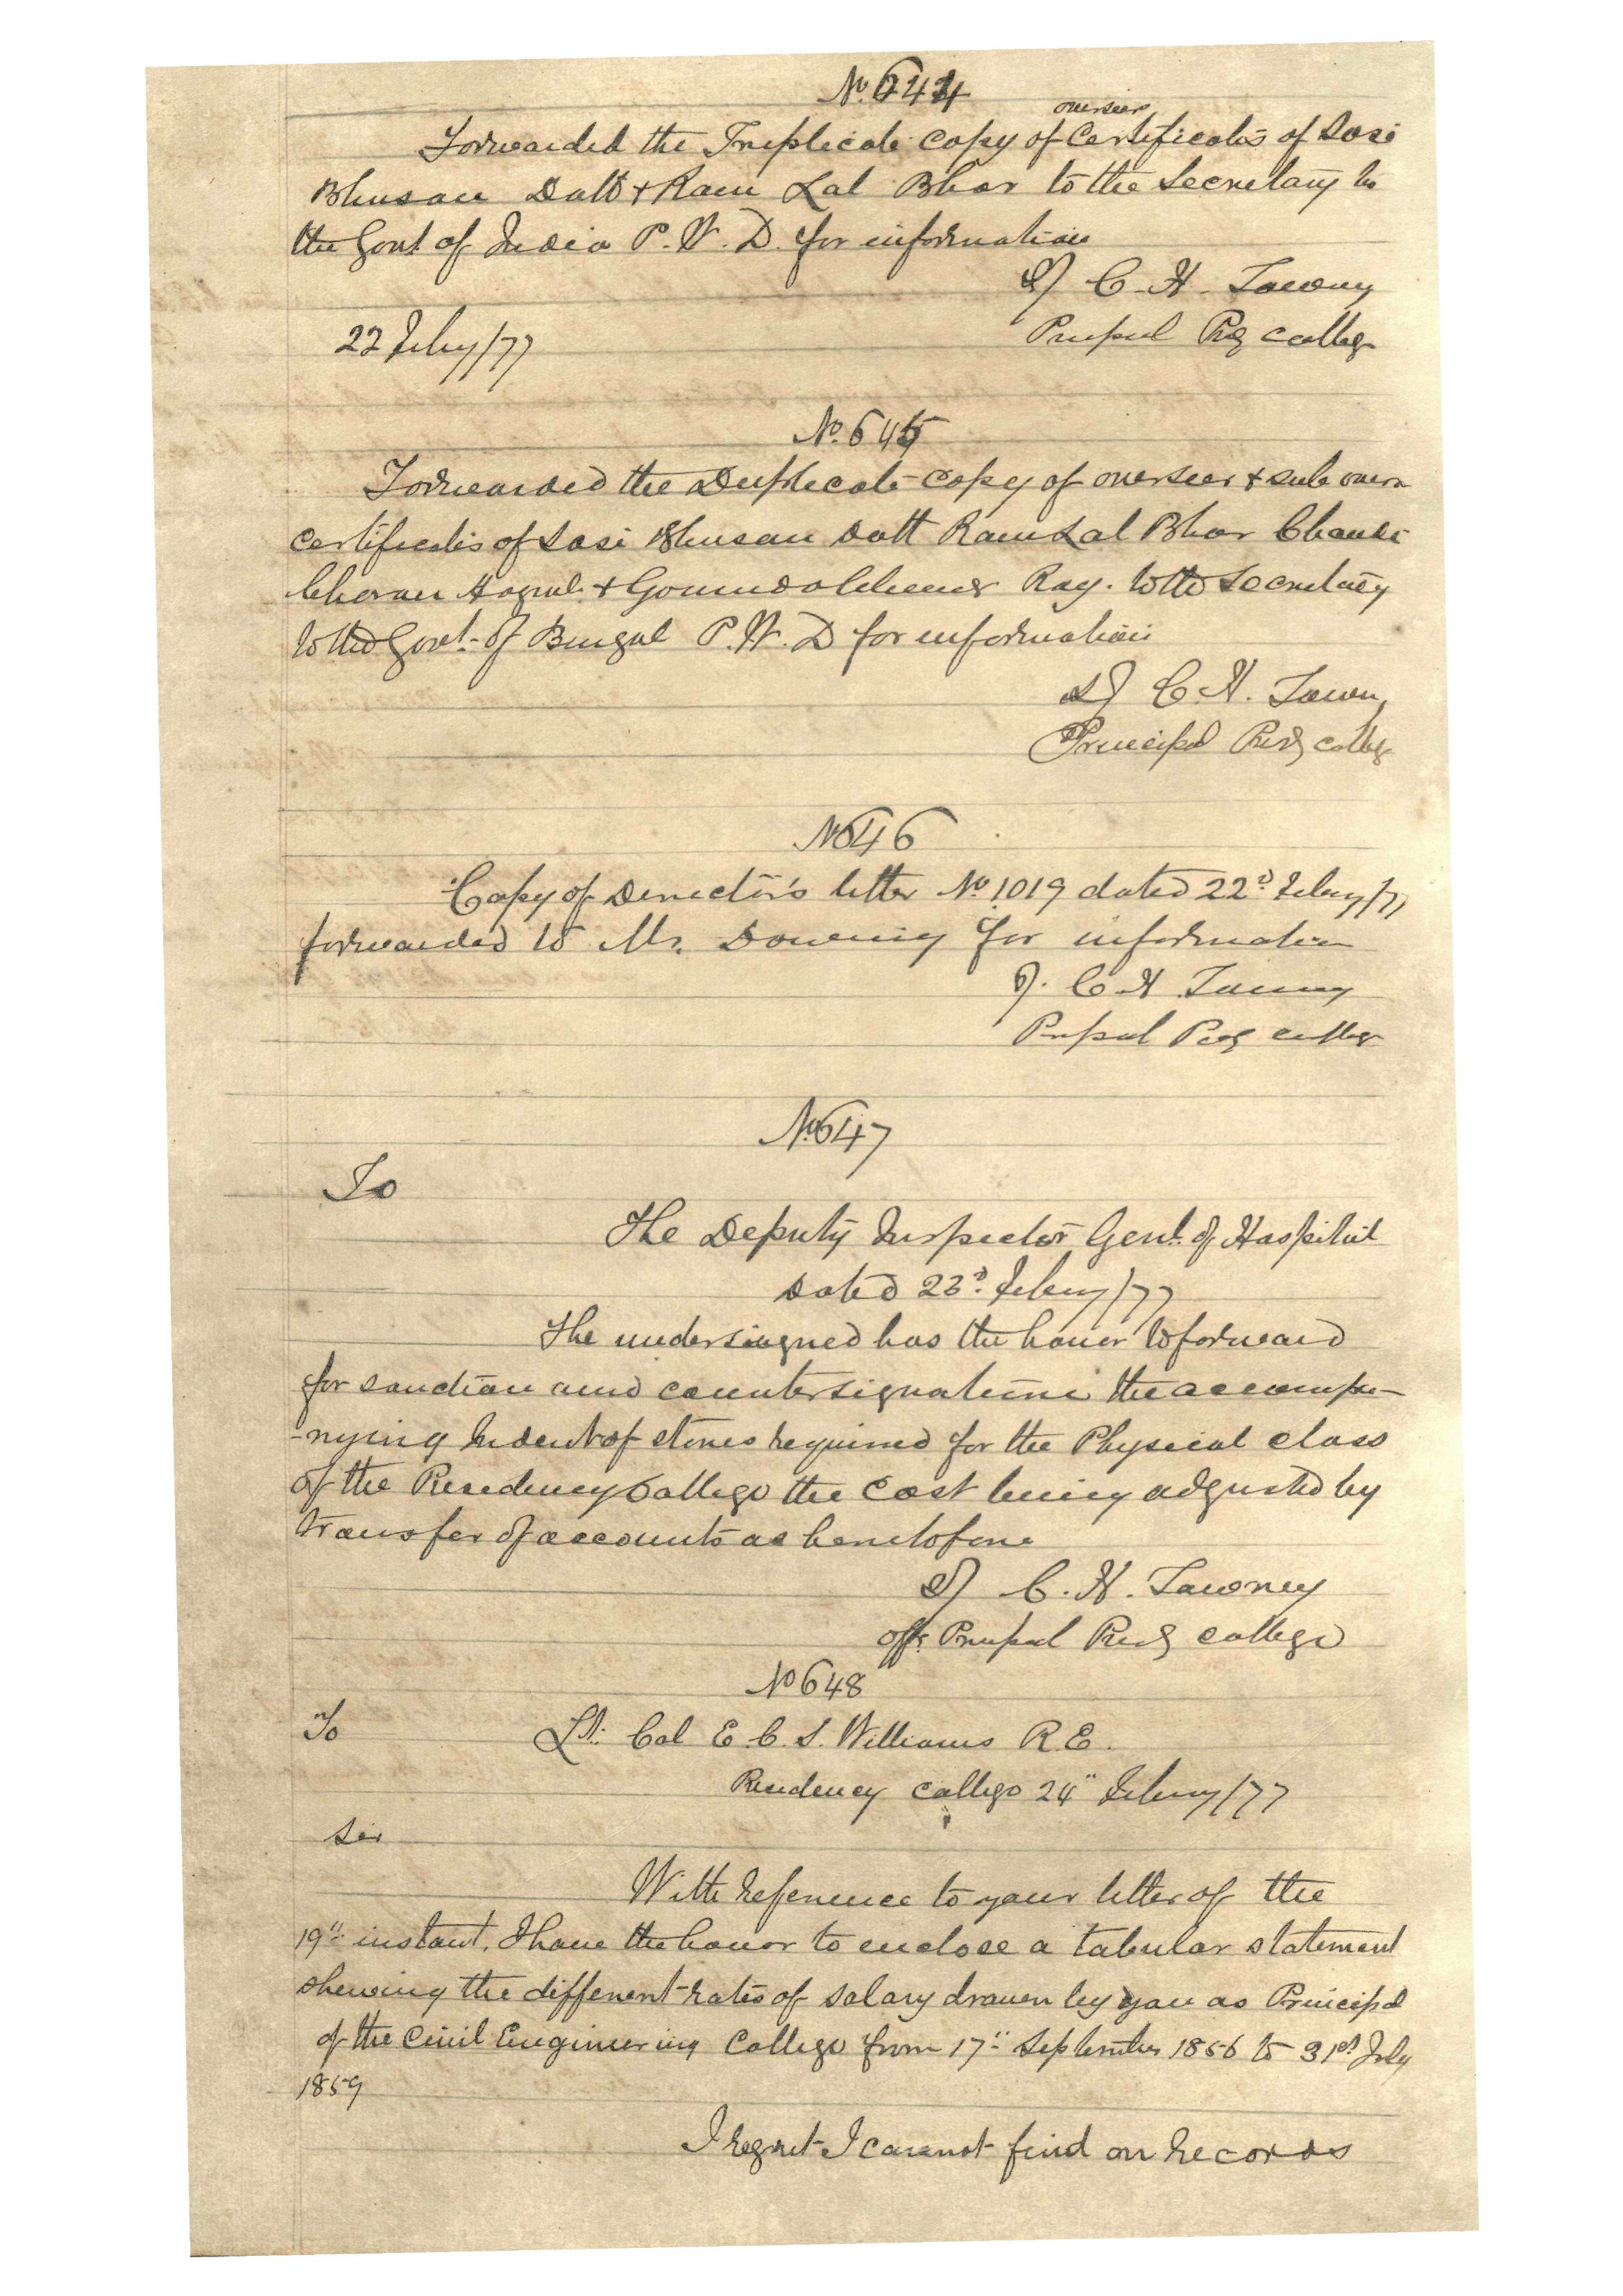 No. 644
Forwarded the Triplicate copy of overseer Certificates of Sosi
Bhusan Datt & Ram Lal Bhor to the Secretary to
the Govt of India P. W. D. for information
Sd/ C. H. Tawney
Prinpal Presy College
22 Febry/77
No. 645
Forwarded the Duplicate copy of overseer & sub overr
certificates of Sosi Bhusan Datt Ram Lal Bhor Chandi
Choran & Ray. to the Secretary
to the Govt. of Bengal P. W. D for information
Sd/ C. H. Tawney
Principal Presy College
No 646
Copy of Director's letter No. 1019 dated 22d Febry/77
forwarded to Mr. Downing for information
Sd/. C H Tawney
Prinpal Presy College
No. 647
To
The Deputy Inspector Genl. of Hospital
Dated 23d. Febry/77
The undersigned has the honor to forward
for sanction and countersignature the accompa-
-nying Indent of stores required for the Physical class
of the Presidency College the cost being adjusted by
transfer of accounts as heretofore
Sd/ C. H. Tawney
Offg. Prinpal Presy College
No 648
To Lt. Col E. C. S. Williams R. E.
Presidency College 24" Febry/77
Sir
With reference to your letter of the
19" instant, I have the honor to enclose a tabular statement
shewing the different rates of salary drawn by you as Principal
of the Civil Engineering College from 17" September 1856 to 31st July
1859
I regret I cannot find on records